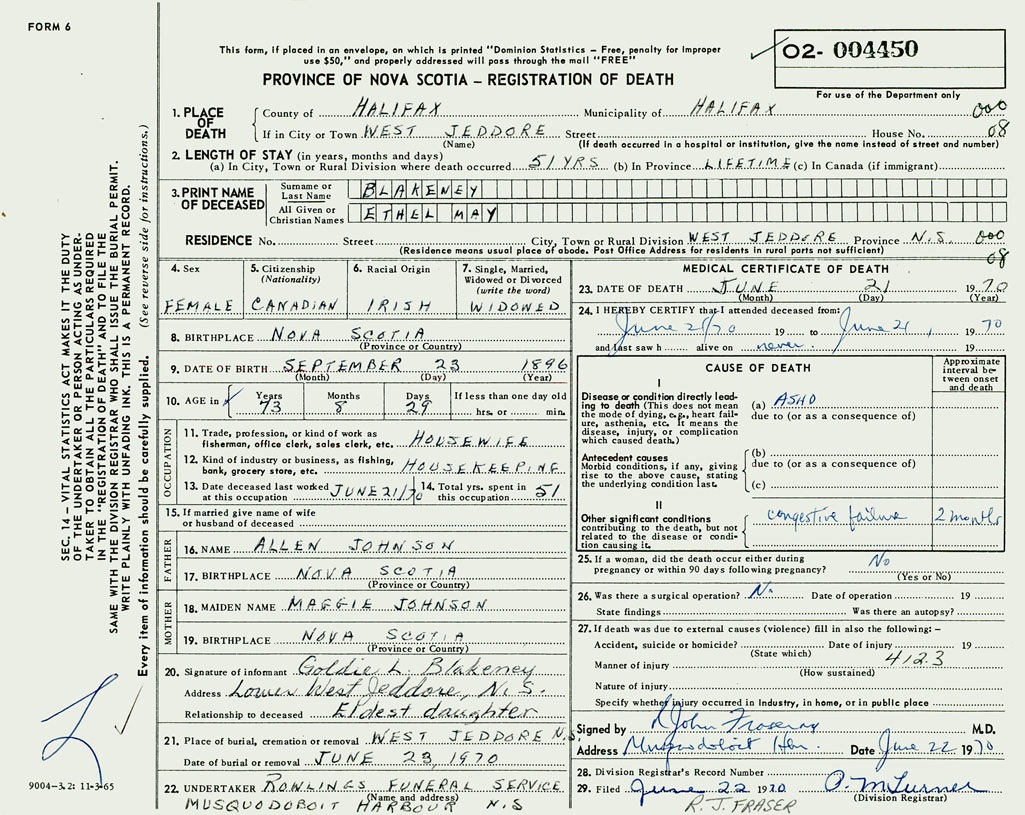 FORM 6
This form, if placed in an envelope, on which is printed "Dominion Statistics – Free, penalty for improper
use $50," and properly addressed will pass through the mail "FREE"
02- 004450
For use of the Department only
PROVINCE OF NOVA SCOTIA – REGISTRATION OF DEATH
SEC. 14 – VITAL STATISTICS ACT MAKES IT THE DUTY
OF THE UNDERTAKER OR PERSON ACTING AS UNDER-
TAKER TO OBTAIN ALL THE PARTICULARS REQUIRED
IN THE "REGISTRATION OF DEATH" AND TO FILE THE
SAME WITH THE DIVISION REGISTRAR WHO SHALL ISSUE THE BURIAL PERMIT.
WRITE PLAINLY WITH UNFADING INK. THIS IS A PERMANENT RECORD.
Every item of information should be carefully supplied. (See reverse side for instructions.)
1. PLACE OF DEATH County of HALIFAX Municipality of HALIFAX 000
If in City or Town WEST JEDDORE Street House No. 08
(Name) (If death occurred in a hospital or institution, give the name instead of street and number)
2. LENGTH OF STAY (in years, months and days)
(a) In City, Town or Rural Division where death occurred 51 YRS (b) In Province LIFETIME (c) In Canada (if immigrant)
3. PRINT NAME OF DECEASED Surname or Last Name BLAKENEY
All Given or Christian Names ETHEL MAY
RESIDENCE No. Street City, Town or Rural Division WEST JEDDORE Province N.S. 000
(Residence means usual place of abode. Post Office Address for residents in rural parts not sufficient) 08
4. Sex 5. Citizenship (Nationality) 6. Racial Origin 7. Single, Married, Widowed or Divorced (write the word)
FEMALE CANADIAN IRISH WIDOWED
8. BIRTHPLACE NOVA SCOTIA
(Province or Country)
9. DATE OF BIRTH SEPTEMBER 23 1896
(Month) (Day) (Year)
10. AGE in Years Months Days If less than one day old
73 8 29 hrs. or min.
OCCUPATION
11. Trade, profession, or kind of work as
fisherman, office clerk, sales clerk, etc. HOUSEWIFE
12. Kind of industry or business, as fishing,
bank, grocery store, etc. HOUSEKEEPING
13. Date deceased last worked at this occupation JUNE 21/70 14. Total yrs. spent in this occupation 51
15. If married give name of wife
or husband of deceased
FATHER
16. NAME ALLEN JOHNSON
17. BIRTHPLACE NOVA SCOTIA
(Province or Country)
MOTHER
18. MAIDEN NAME MAGGIE JOHNSON
19. BIRTHPLACE NOVA SCOTIA
(Province or Country)
20. Signature of informant Goldie L. Blakeney
Address Lower West Jeddore, N.S.
Relationship to deceased Eldest daughter
21. Place of burial, cremation or removal WEST JEDDORE N.S.
Date of burial or removal JUNE 23, 1970
22. UNDERTAKER ROWLINGS FUNERAL SERVICE
(Name and address)
MUSQUODOBOIT HARBOUR N.S
9004-3.2: 11-3-65
MEDICAL CERTIFICATE OF DEATH
23. DATE OF DEATH JUNE 21 1970
(Month) (Day) (Year)
24. I HEREBY CERTIFY that I attended deceased from:
June 21/70 19 to June 21, 1970
and last saw h alive on never. 19
CAUSE OF DEATH
Approximate interval between onset and death
I
Disease or condition directly lead-
ing to death (This does not mean
the mode of dying, e.g., heart failure,
asthenia, etc. It means the
disease, injury, or complication
which caused death.)
(a) ASHD
due to (or as a consequence of)
Antecedent causes
Morbid conditions, if any, giving
rise to the above cause, stating
the underlying condition last.
(b)
due to (or as a consequence of)
(c)
II
Other significant conditions
contributing to the death, but not
related to the disease or condi-
tion causing it.
congestive failure 2 months
25. If a woman, did the death occur either during
pregnancy or within 90 days following pregnancy? No
(Yes or No)
26. Was there a surgical operation? No Date of operation 19
State findings Was there an autopsy?
27. If death was due to external causes (violence) fill in also the following: –
Accident, suicide or homicide? Date of injury 19
(State which) 4123
Manner of injury
(How sustained)
Nature of injury
Specify whether injury occurred in Industry, in home, or in public place
Signed by R John Fraser M.D.
Address Musquodoboit Hbr. Date June 22 1970
28. Division Registrar's Record Number
29. Filed June 22 1970 P. M Turner
(Division Registrar)
R. J. FRASER